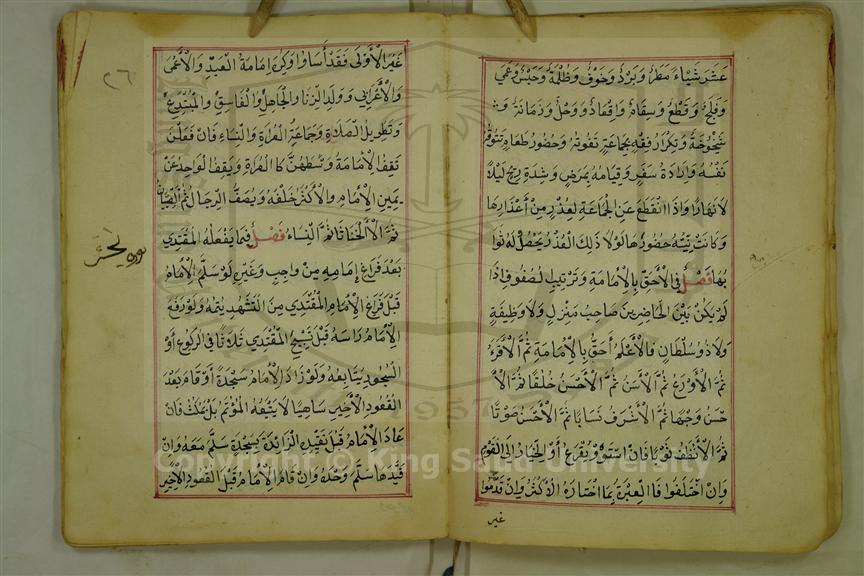 عشر شياء مطر وبرد وخوف وظلمة وحبس وعمى
وفلج وقطع وسقاد واقعاد ووحل وزمانة وش
شيخوخة وتكرار فقه بجماعة تفوته وحضور طعام تتوق
نفسه وارادة سفر وقيامه بمرض وشدة ريح ليلا
لا نهارا واذا انقطع عن الجماعة لعذر من أعذارها
وكانت نيته حضورها لولا ذلك العذر يحصل له ثوا
بها فصل في الأحق بالإمامة وترتيب الصفوف اذا
لم يكن بين الحاضرين صاحب منزل ولا وظيفة
ولا ذو سلطان فالأعلم أحق بالإمامة ثم الأقرء
ثم الأورع ثم الأسن ثم الأحسن خلقا ثم الأ
حسن وجها ثم الأشرف نسبا ثم الأحسن صوتا
ثم الأنظف ثوبا فان استووا يقرع أو الخيار الى القوم
وان اختلفوا فالعبرة بما اختاره الأكثر وان قدموا
غير
٢٦
غير الأولى فقد أساوا وكره إمامة العبد والأعمى
والأعرابي وولد الزنا والجاهل والفاسق والمبتدع
وتطويل الصلاة وجماعة العراة والنساء فان فعلن
تقف الإمامة وسطهن كالعراة ويقف الواحد عن
يمين الإمام والأكثر خلفه ويصف الرجال ثم الصبيان
ثم الخناثا ثم النساء فصل فيما يفعله المقتدي
بعد فراغ إمامه من واجب وغيره لو سلم الإمام
قبل فراغ الإمام المقتدي من التشهد يتمه ولو رفع
الإمام راسه قبل تسبيح المقتدي ثلاثا في الركوع أو
السجود يتابعه ولو زاد الإمام سجدة أو قام بعد
القعود الأخير ساهيا لا يتبعه المؤتم بل يمكث فان
عاد الإمام قبل تقييد الزائدة بسجدة سلم معه وان
قيدها سلم وحده وان قام الإمام قبل القعود الأخير
Copyright © King Saud University
1957